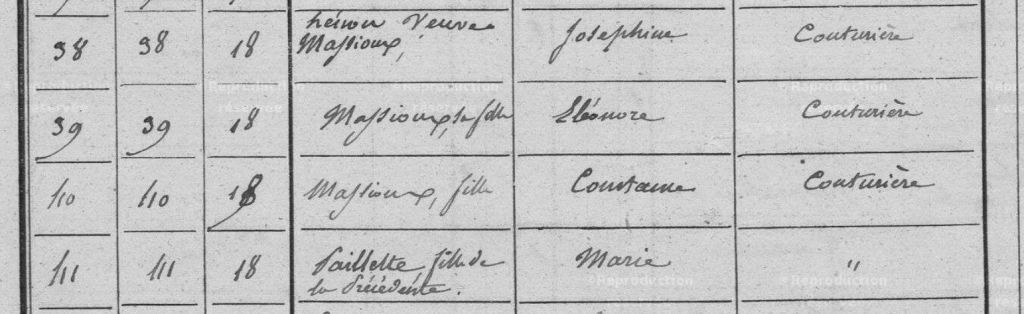 38 38 18 hénon Veuve Massioux, Joséphine Couturière
39 39 18 Massioux, sa fille Eléonore Couturière
40 40 18 Massioux, fille Constance Couturière
41 41 18 Paillette fille de la Précédente. Marie "